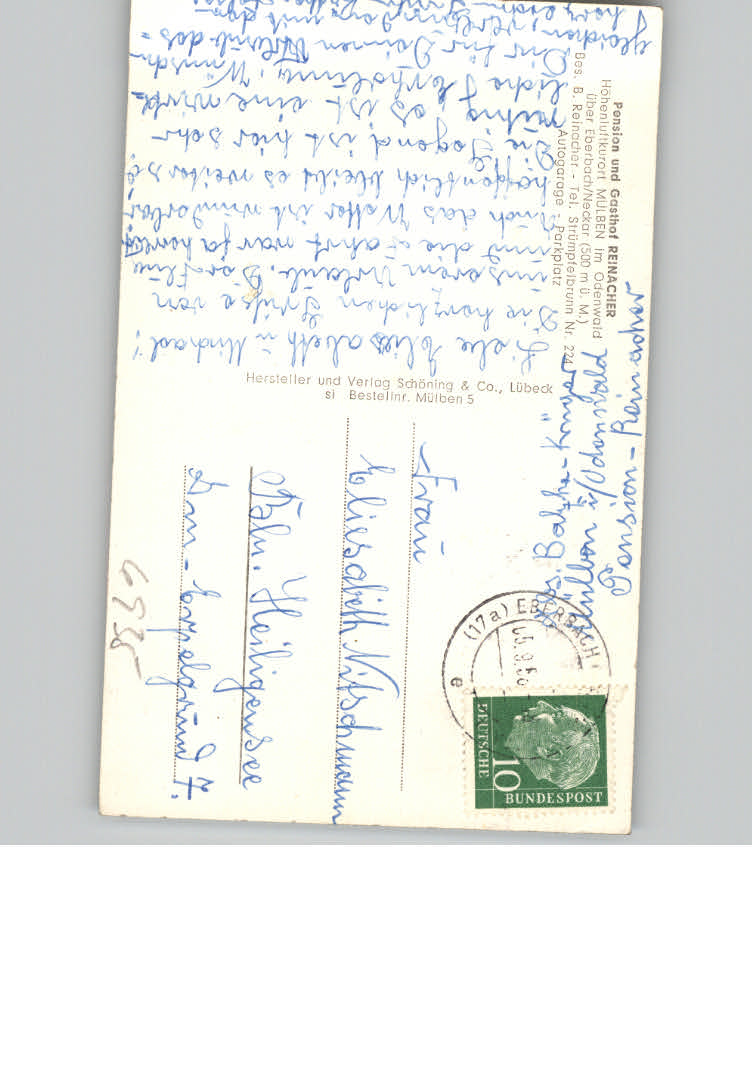 Pension und Gasthof REINACHER
Höhenluftkurort MÜLBEN im Odenwald
über Eberbach/Neckar (500 m ü. M.)
Bes. B. Reinacher - Tel. Strümpfelbrunn Nr. 224
Autogarage - Parkplatz
Pension - Reinacher
Mülben i/Odenwald
Liebe Elisabeth u Michael!
Die herzlichen Grüße von
unserem Urlaub.
und die Fahrt war ja
Auch das Wetter ist wunderbar
hoffentlich bleibt es weiter so.
Die Gegend ist hier sehr
ruhig, es ist eine wirk-
liche Erholung. Wünsch
Dir für Deinen Urlaub das-
Hersteller und Verlag Schöning & Co., Lübeck
si Bestellnr. Mülben 5
(17a) EBERBACH
e
DEUTSCHE
BUNDESPOST
10
Frau
Eliesabeth Nitschmann
Bln. Heiligensee
Am - Erpelgrund 7.